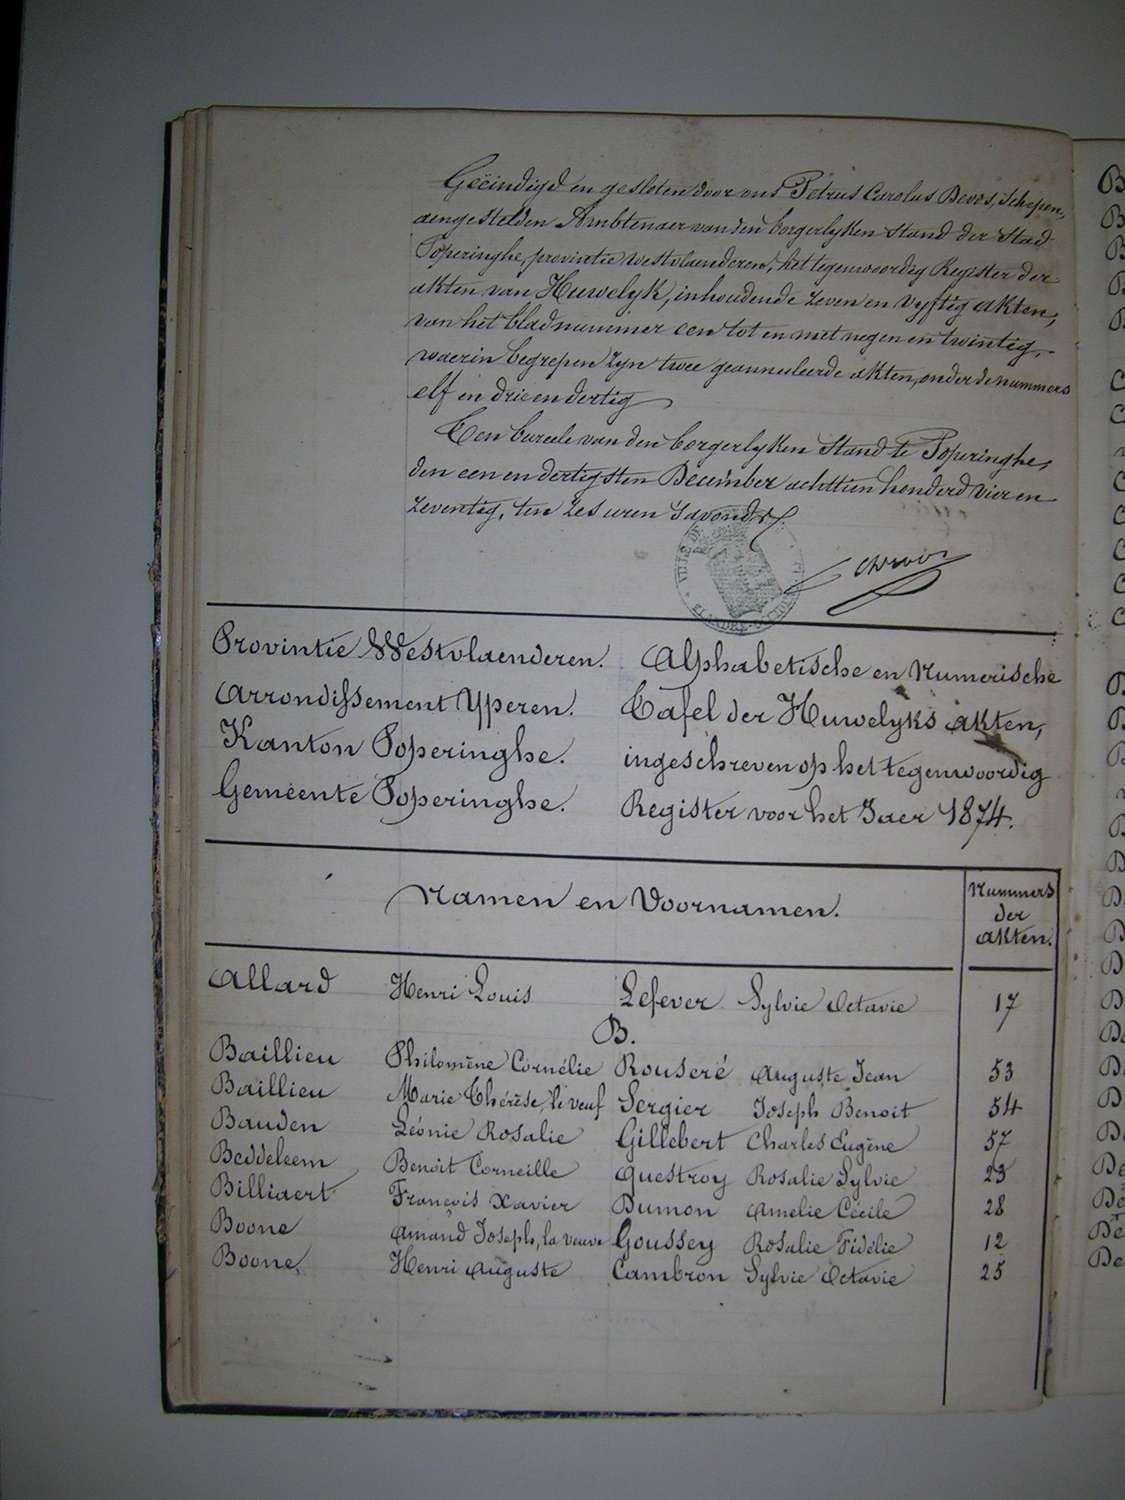 Geëindigd en gesloten door ons Petrus Carolus Devos, Schepen,
aengestelden Ambtenaer van den borgerlyken Stand der Stad
Poperinghe, provintie westvlaenderen, het tegenwoordig Register der
akten van Huwelyk, inhoudende zeven en vyftig akten,
van het bladnummer een tot en met negen en twintig,
waerin begrepen zyn twee geannuleerde akten, onder de nummers
elf en drie en dertig
Ten bureele van den borgerlyken Stand te Poperinghe,
den een en dertigsten December achttien honderd vier en
zeventig, ten zes uren 's avonds.
Provintie Westvlaenderen. Alphabetische en Numerische
Arrondissement Yperen. Tafel der Huwelyks akten,
Kanton Poperinghe. ingeschreven op het tegenwoordig
Gemeente Poperinghe. Register voor het Jaer 1874.
Namen en Voornamen. Nummers
der
akten.
Allard Henri Louis Lefever Sylvie Octavie 17
B.
Baillieu Philomène Cornélie Rouseré Auguste Jean 53
Baillieu Marie Thérèse, le veuf Sergier Joseph Benoit 54
Bauden Léonie Rosalie Gillebert Charles Eugène 57
Beddeleem Benoit Corneille Questroy Rosalie Sylvie 23
Billiaert François Xavier Dumon Amelie Cécile 28
Boone Amand Joseph, la veuve Goussey Rosalie Fidélie 12
Boone Henri Auguste Cambron Sylvie Octavie 25